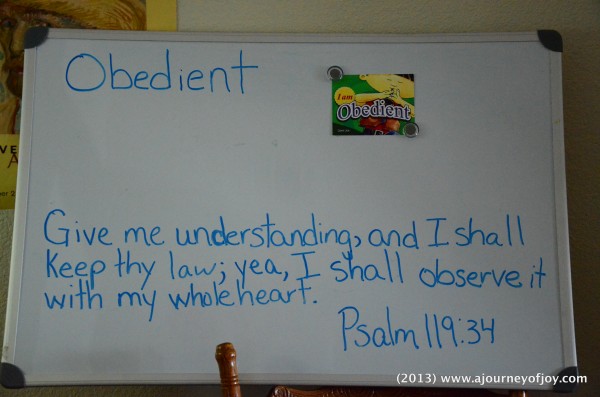 Obedient
I am
Obedient
Give me understanding, and I shall
keep thy law; yea, I shall observe it
with my whole heart.
Psalm 119:34
(2013) www.ajourneyofjoy.com